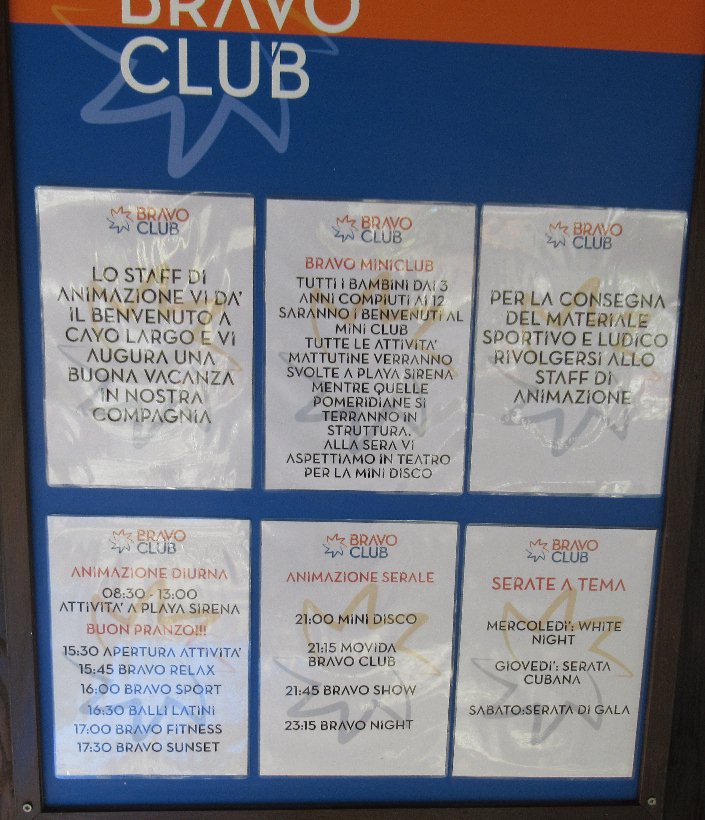 BRAVO
CLUB
BRAVO
CLUB
LO STAFF DI
ANIMAZIONE VI DA'
IL BENVENUTO A
CAYO LARGO E VI
AUGURA UNA
BUONA VACANZA
IN NOSTRA
COMPAGNIA
BRAVO
CLUB
BRAVO MINICLUB
TUTTI I BAMBINI DAI 3
ANNI COMPIUTI AI 12
SARANNO I BENVENUTI AL
MINI CLUB
TUTTE LE ATTIVITA'
MATTUTINE VERRANNO
SVOLTE A PLAYA SIRENA
MENTRE QUELLE
POMERIDIANE SI
TERRANNO IN
STRUTTURA.
ALLA SERA VI
ASPETTIAMO IN TEATRO
PER LA MINI DISCO
BRAVO
CLUB
PER LA CONSEGNA
DEL MATERIALE
SPORTIVO E LUDICO
RIVOLGERSI ALLO
STAFF DI
ANIMAZIONE
BRAVO
CLUB
ANIMAZIONE DIURNA
08:30 - 13:00
ATTIVITA' A PLAYA SIRENA
BUON PRANZO!!!
15:30 APERTURA ATTIVITA'
15:45 BRAVO RELAX
16:00 BRAVO SPORT
16:30 BALLI LATINI
17:00 BRAVO FITNESS
17:30 BRAVO SUNSET
BRAVO
CLUB
ANIMAZIONE SERALE
21:00 MINI DISCO
21:15 MOVIDA
BRAVO CLUB
21:45 BRAVO SHOW
23:15 BRAVO NIGHT
BRAVO
CLUB
SERATE A TEMA
MERCOLEDI': WHITE
NIGHT
GIOVEDI': SERATA
CUBANA
SABATO:SERATA DI GALA